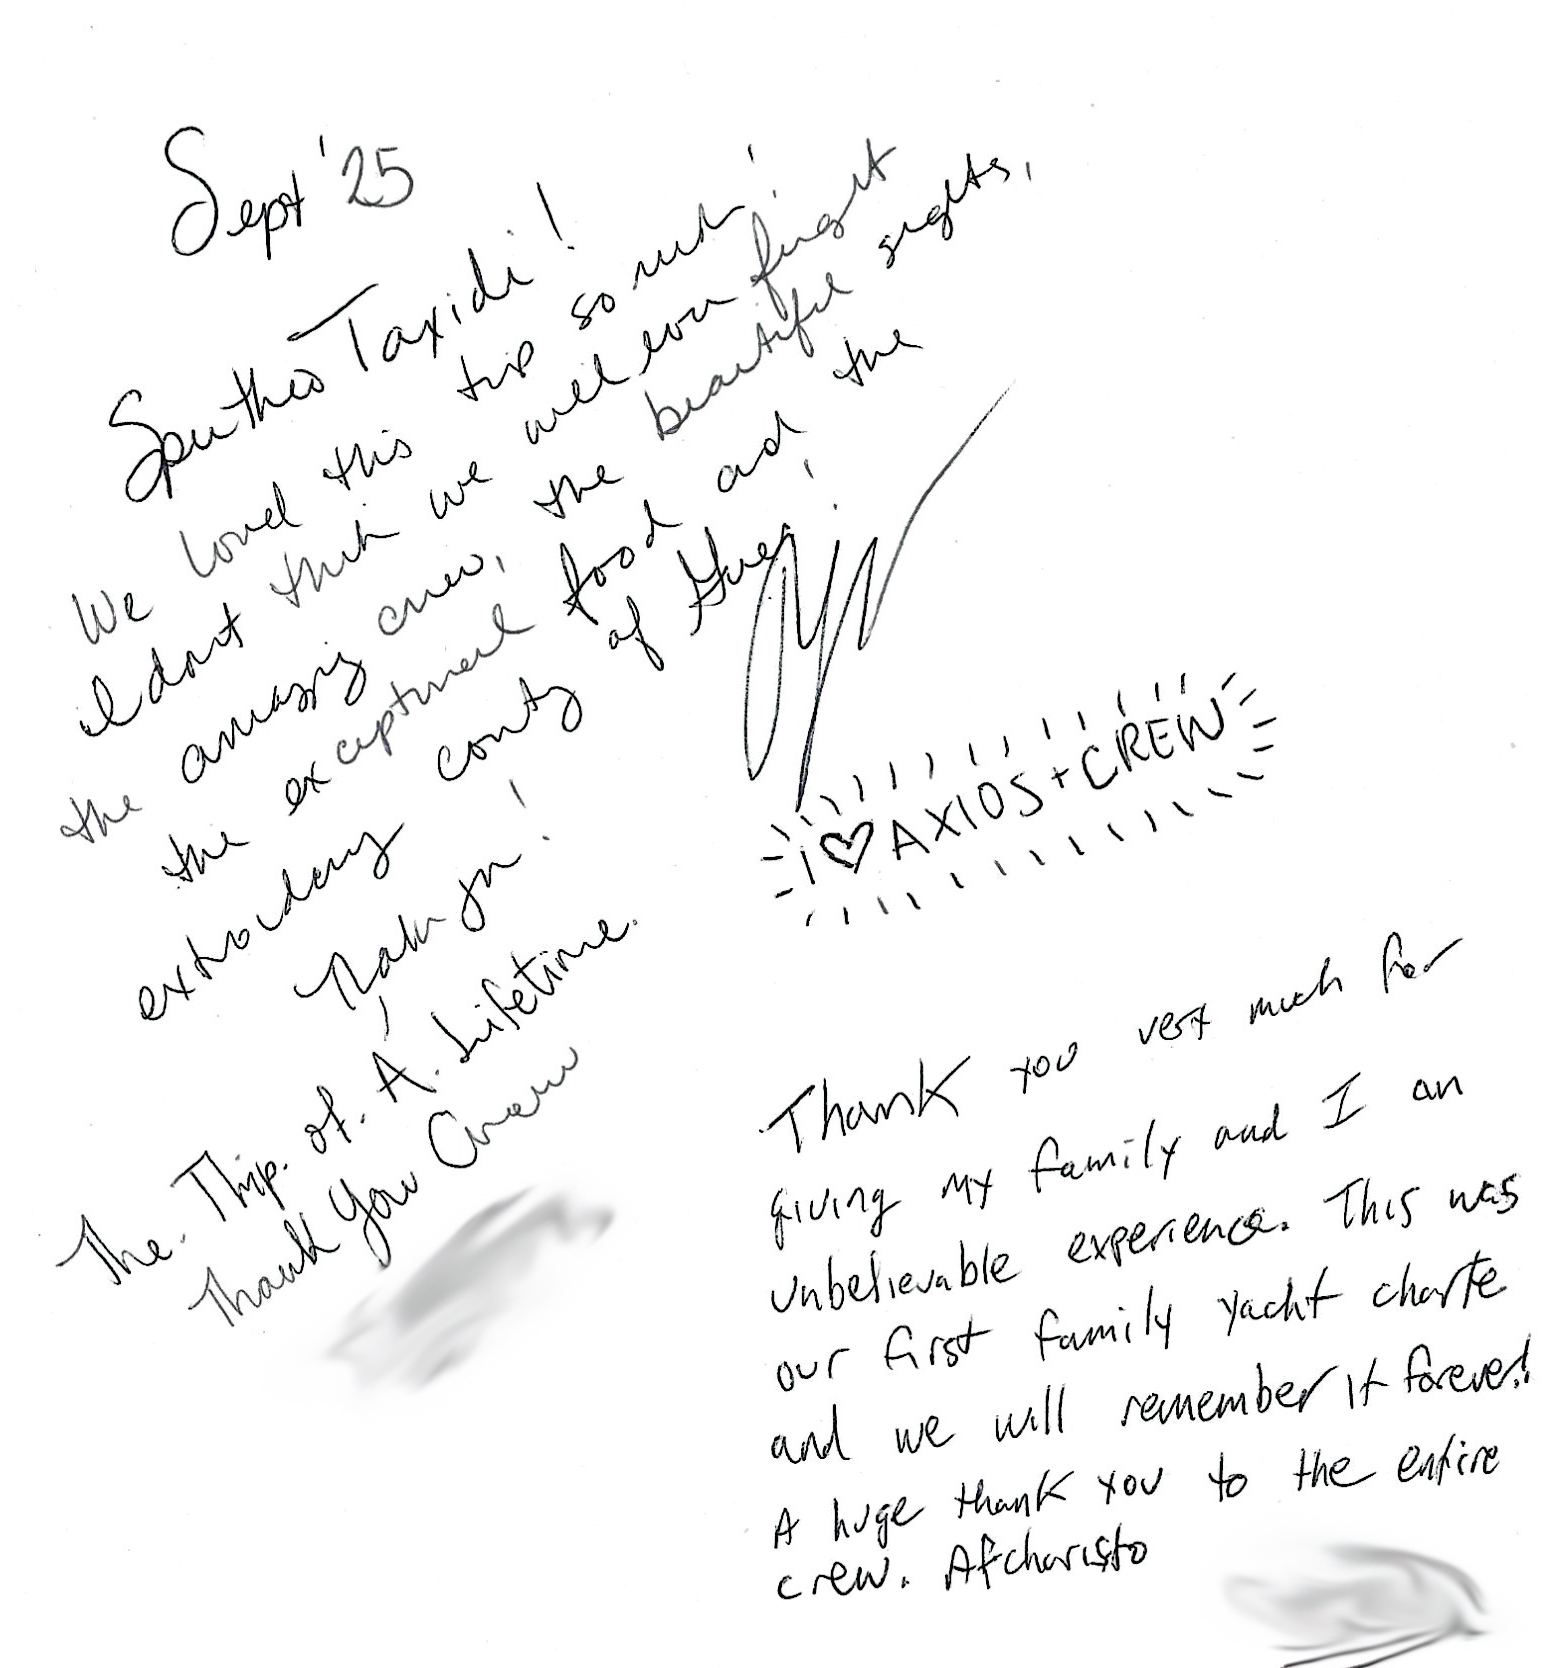 Sept '25
Spentheo Taxidi!
We loved this trip so much!
I don't think we will ever forget
the amazing crew, the beautiful sights,
the exceptional food and the
extrordany county of Greece!
Thank you!
The. Trip. of. A. Lifetime.
Thank You Crew
I ♥ AXIOS + CREW
Thank you very much for
giving my family and I an
unbelievable experience. This was
our first family yacht charte
and we will remember it forever!
A huge thank you to the entire
crew. Afcharisto